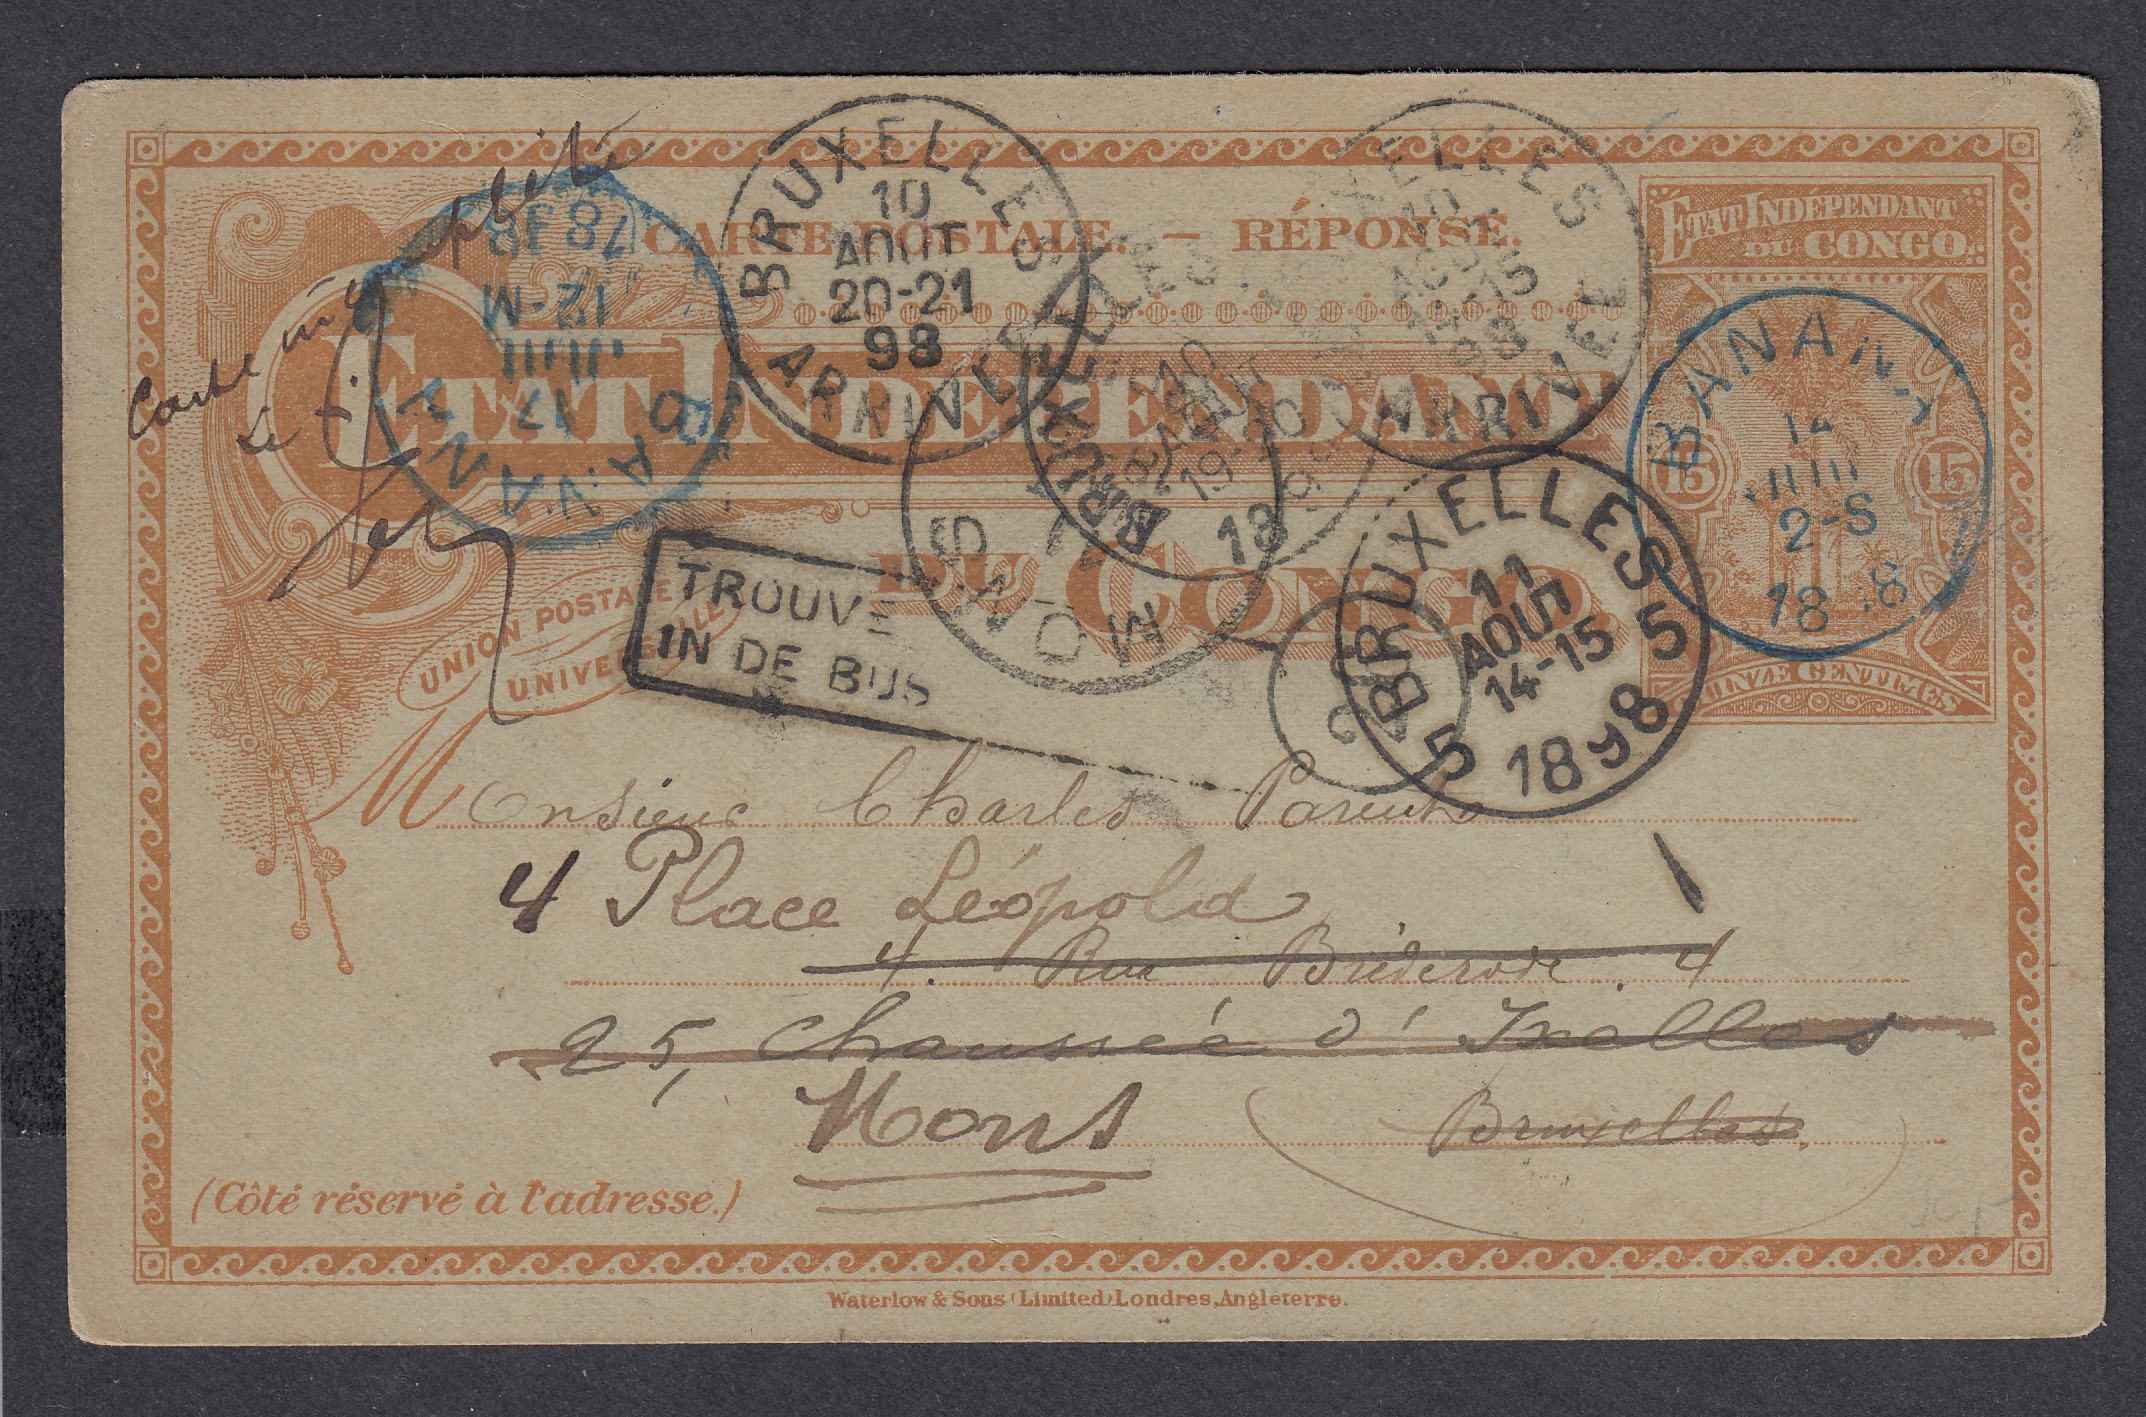 CARTE POSTALE. — RÉPONSE.
ETAT INDÉPENDANT
DU CONGO
ETAT INDÉPENDANT
DU CONGO.
15 15
QUINZE CENTIMES
UNION POSTALE
UNIVERSELLE
Carte
BANANA
17
JUIL
12-M
BRUXELLES
10
AOUT
20-21
98
ARRIVEE
BRUXELLES
10
14-15
98
ARRIVEE
BANANA
14
JUIL
2-S
18 8
BRUXELLES
10
AOUT
19-20
18
MONS
TROUVE
IN DE BUS
BRUXELLES
11
AOUT
14-15
1898
5 5
Monsieur Charles
4 Place Léopold
4. Rue Bréderode. 4
25, Chaussée d'Ixelles
Mons Bruxelles.
(Côté réservé à l'adresse.)
Waterlow & Sons (Limited) Londres, Angleterre.